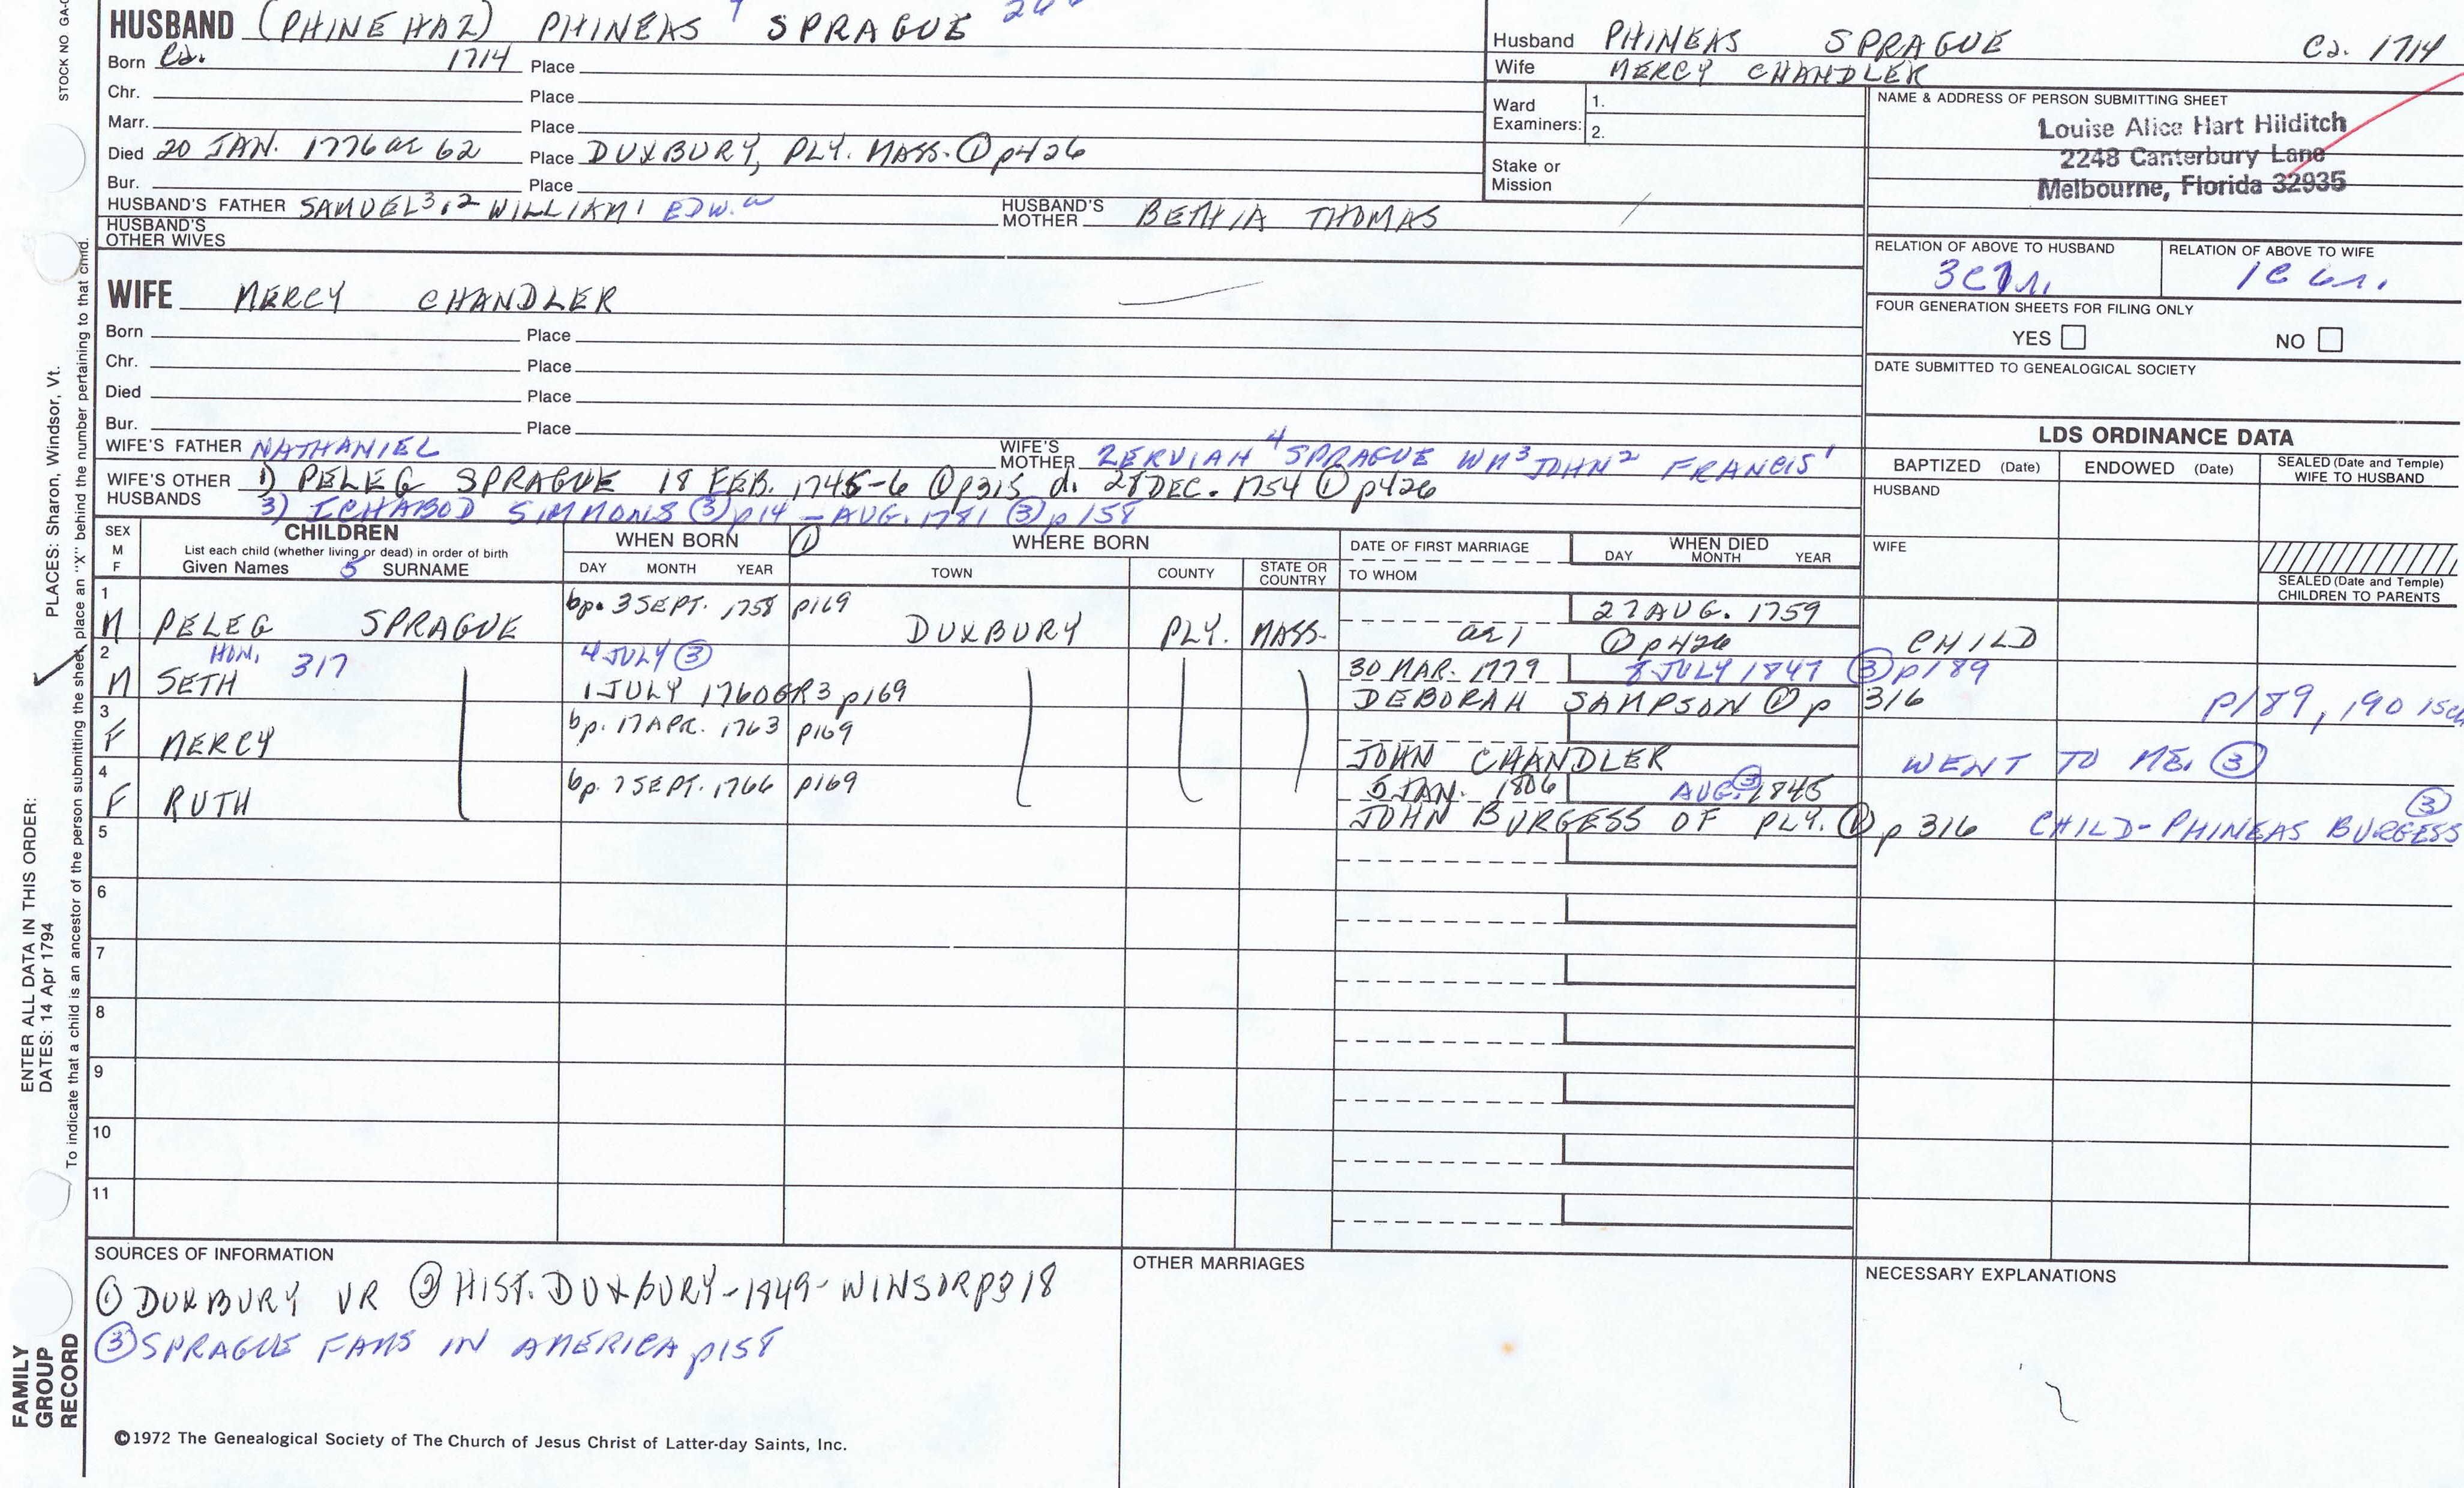 STOCK NO GA-
HUSBAND (PHINEHAZ) PHINEAS SPRAGUE
Born Ca. 1714 Place
Chr. Place
Marr. Place
Died 20 JAN. 1776 ae 62 Place DUXBURY, PLY. MASS. ① p426
Bur. Place
HUSBAND'S FATHER SAMUEL 3,2 WILLIAM 1 EDW.
HUSBAND'S MOTHER BETHIA THOMAS
HUSBAND'S OTHER WIVES
Husband PHINEAS SPRAGUE Ca. 1714
Wife MERCY CHANDLER
Ward Examiners: 1.
2.
Stake or Mission
NAME & ADDRESS OF PERSON SUBMITTING SHEET
Louise Alice Hart Hilditch
2248 Canterbury Lane
Melbourne, Florida 32935
RELATION OF ABOVE TO HUSBAND
RELATION OF ABOVE TO WIFE
FOUR GENERATION SHEETS FOR FILING ONLY
YES NO
DATE SUBMITTED TO GENEALOGICAL SOCIETY
WIFE MERCY CHANDLER
Born Place
Chr. Place
Died Place
Bur. Place
WIFE'S FATHER NATHANIEL
WIFE'S MOTHER ZERVIAH 4 SPRAGUE WM 3 JOHN 2 FRANCIS 1
WIFE'S OTHER HUSBANDS 1) PELEG SPRAGUE 18 FEB. 1745-6 ① p315 d. 28 DEC. 1754 ① p426
3) ICHABOD SIMMONS ③ p14 - AUG. 1781 ③ p158
LDS ORDINANCE DATA
BAPTIZED (Date) ENDOWED (Date) SEALED (Date and Temple) WIFE TO HUSBAND
HUSBAND
WIFE
SEALED (Date and Temple) CHILDREN TO PARENTS
SEX M F
CHILDREN
List each child (whether living or dead) in order of birth
Given Names 5 SURNAME
WHEN BORN
DAY MONTH YEAR
① WHERE BORN
TOWN COUNTY STATE OR COUNTRY
DATE OF FIRST MARRIAGE
TO WHOM
WHEN DIED
DAY MONTH YEAR
1 bp. 3 SEPT. 1758 p169 27 AUG. 1759
M PELEG SPRAGUE DUXBURY PLY. MASS. ae 1 ① p426 CHILD
2 HON. 317 4 JULY ③ 30 MAR. 1779 8 JULY 1847 ③ p189
M SETH 1 JULY 1760 GR3 p169 DEBORAH SAMPSON ① p 316 p189, 190
3 bp. 17 APR. 1763 p169
F MERCY JOHN CHANDLER WENT TO ME. ③
4 bp. 7 SEPT. 1766 p169 5 JAN. 1806 AUG. ③ 1845
F RUTH JOHN BURGESS OF PLY. ① p 316 CHILD-PHINEAS BURGESS ③
5
6
7
8
9
10
11
SOURCES OF INFORMATION
① DUXBURY VR ② HIST. DUXBURY-1849-WINSOR p318
③ SPRAGUE FAMS IN AMERICA p158
OTHER MARRIAGES
NECESSARY EXPLANATIONS
©1972 The Genealogical Society of The Church of Jesus Christ of Latter-day Saints, Inc.
FAMILY GROUP RECORD
ENTER ALL DATA IN THIS ORDER:
DATES: 14 Apr 1794
PLACES: Sharon, Windsor, Vt.
To indicate that a child is an ancestor of the person submitting the sheet, place an "X" behind the number pertaining to that child.